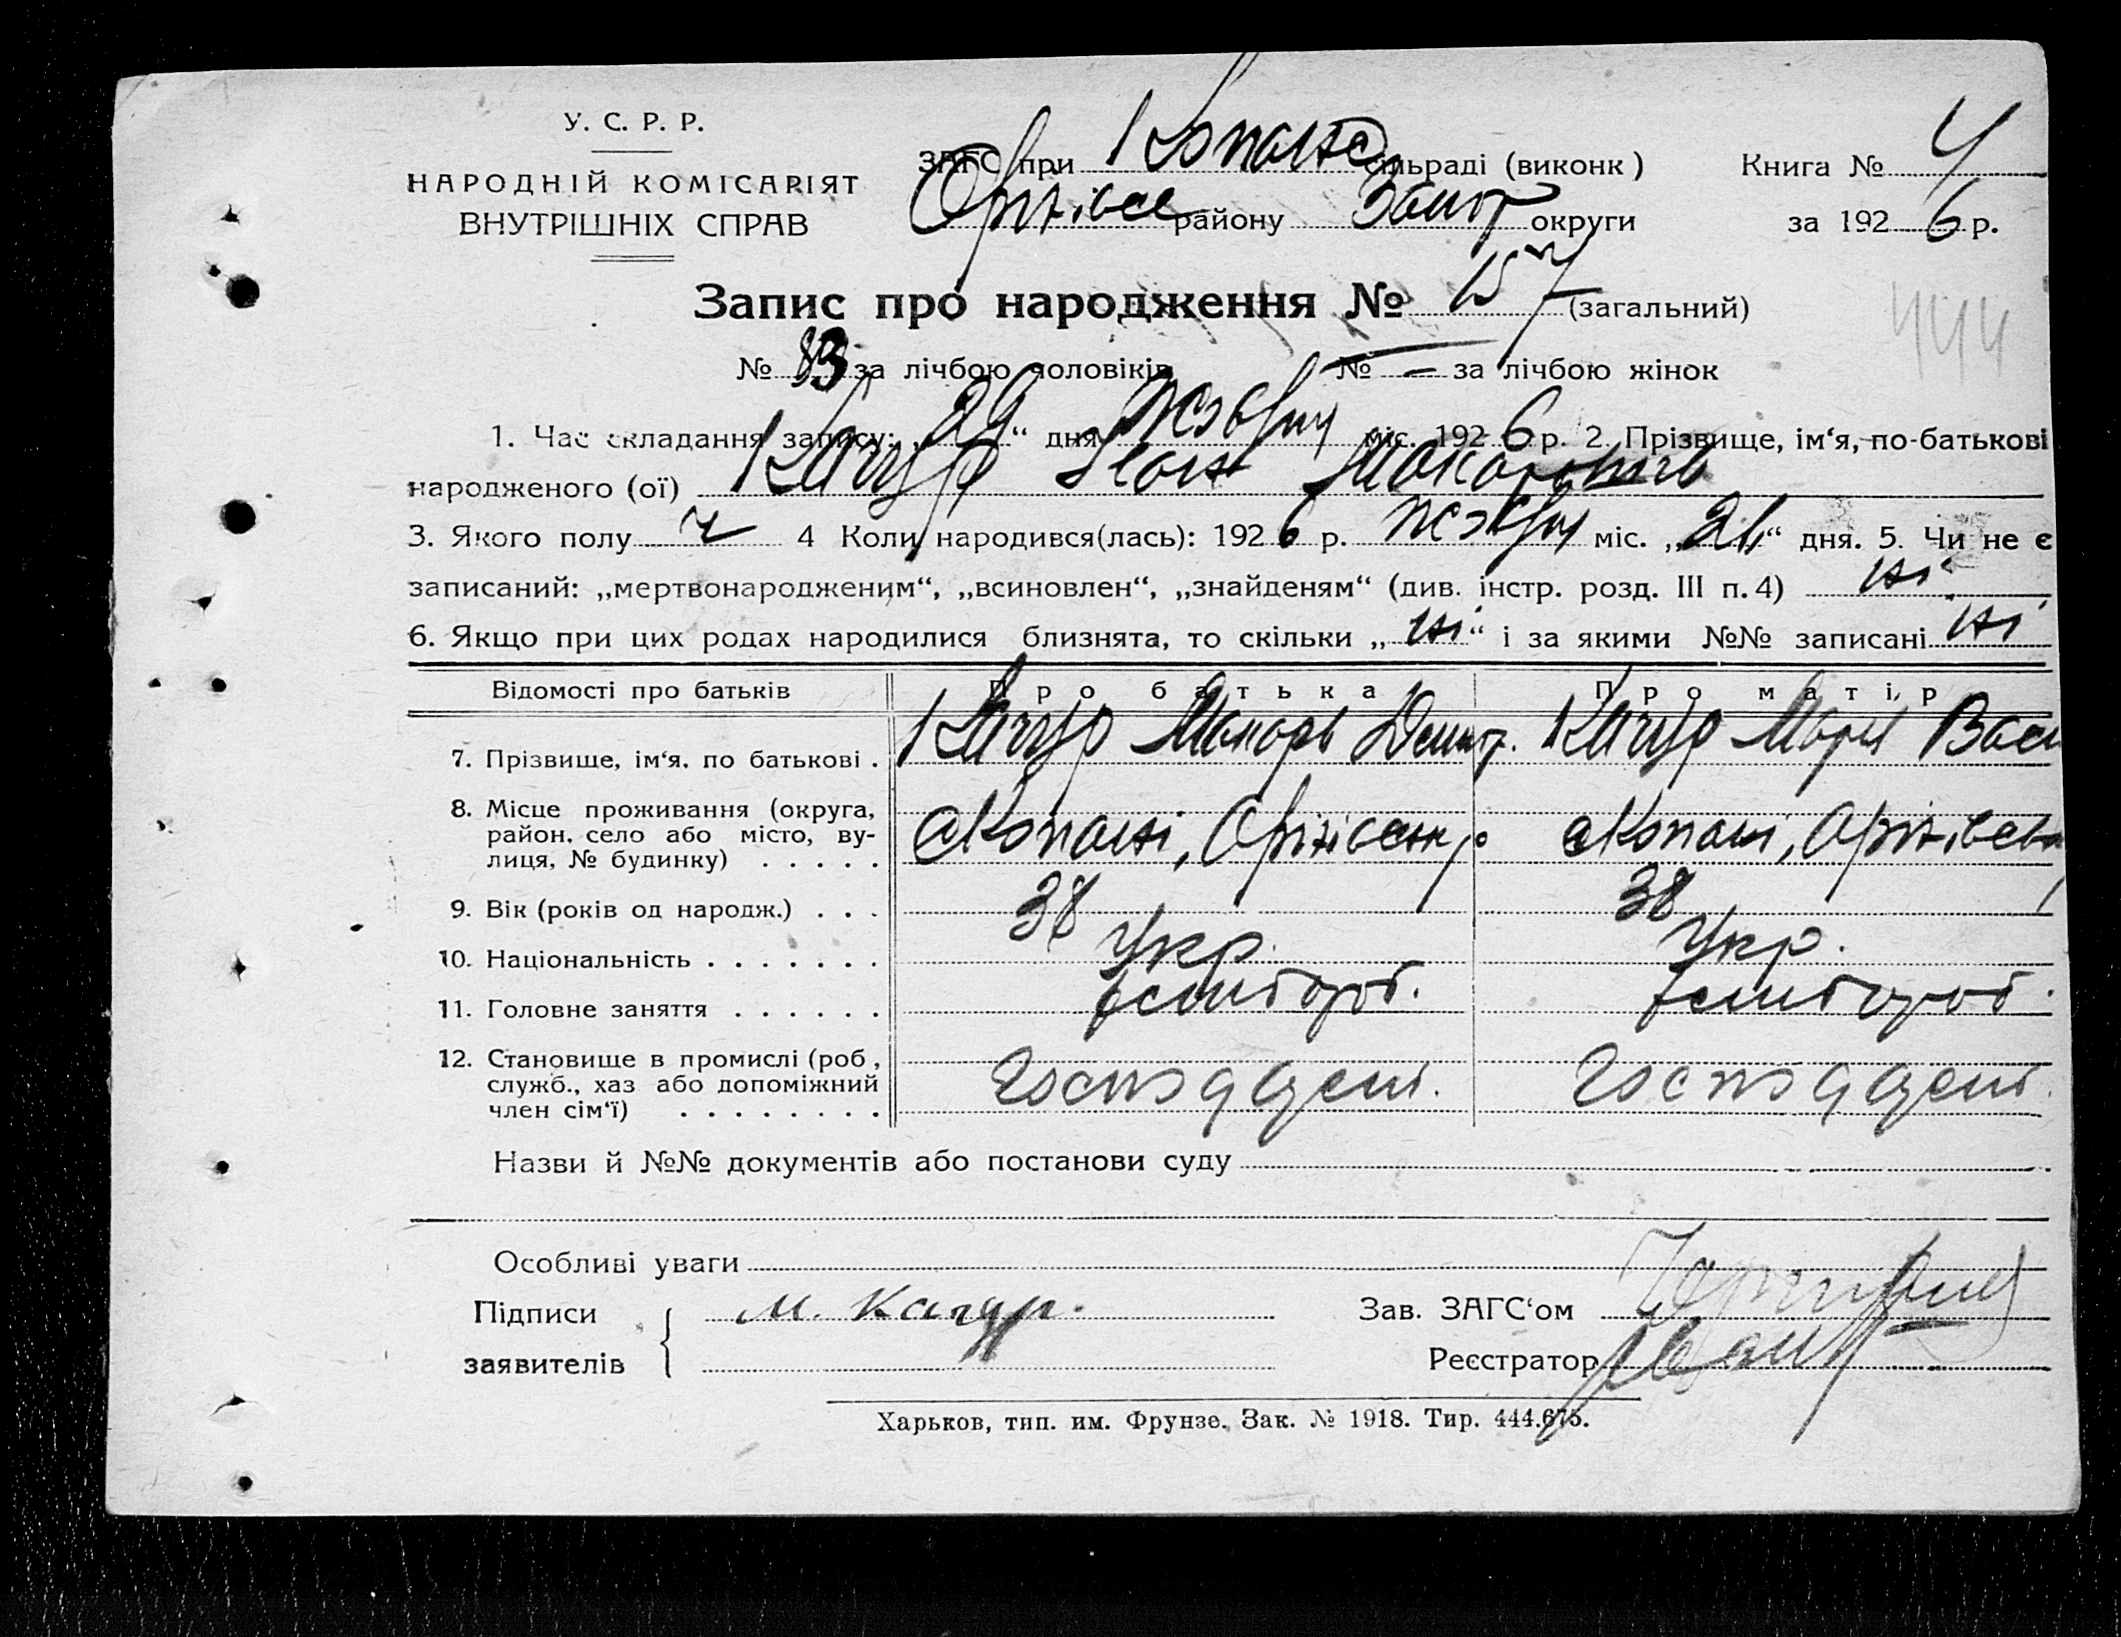 У. С. Р. Р.
НАРОДНІЙ КОМІСАРІЯТ
ВНУТРІШНІХ СПРАВ
ЗАГС при Копанс сільраді (виконк)
Оріхівсе району Запор округи
Книга № 4
за 1926 р.
Запис про народження № 157 (загальний)
444
№ 83 за лічбою чоловіків № — за лічбою жінок
1. Час складання запису: „29“ дня жовтн міс. 1926 р. 2. Прізвище, ім‘я, по-батькові
народженого (ої) Качур Іван Макарович
3. Якого полу ч 4 Коли народився(лась): 1926 р. жовтн міс. „ “ дня. 5. Чи не є
записаний: „мертвонародженим“, „всиновлен“, „знайденям“ (див. інстр. розд. III п. 4) ні
6. Якщо при цих родах народилися близнята, то скільки „ні“ і за якими №№ записані ні
Відомості про батьків Про батька Про матір
7. Прізвище, ім‘я, по батькові . Качур Макарь Дмит. Качур Марія Васи
8. Місце проживання (округа,
район, село або місто, ву-
лиця, № будинку) . . . . . с Копані, Оріхівськ р с Копані, Оріхівськ
9. Вік (років од народж.) . . . 38 38
10. Національність . . . . . . . Укр. Укр.
11. Головне заняття . . . . . .
12. Становище в промислі (роб.,
служб., хаз або допоміжний
член сім‘ї) . . . . . . . . .
Назви й №№ документів або постанови суду
Особливі уваги
Підписи
заявителів
М. Качур.
Зав. ЗАГС‘ом
Реєстратор
Харьков, тип. им. Фрунзе. Зак. № 1918. Тир. 444.675.